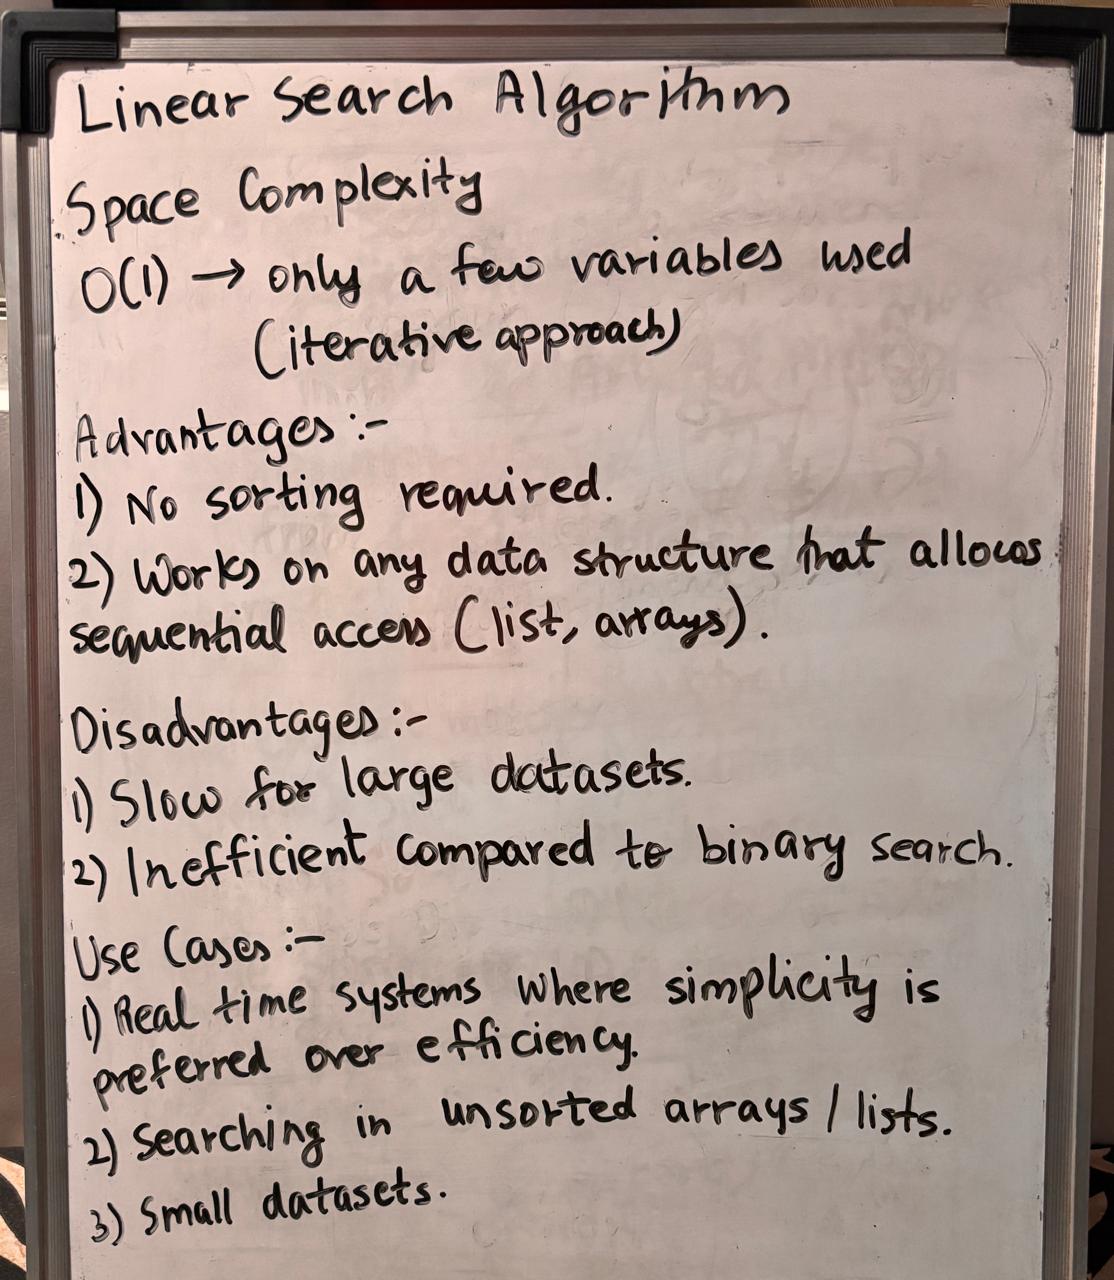 Linear Search Algorithm
Space Complexity
O(1) → only a few variables used
(iterative approach)
Advantages :-
1) No sorting required.
2) Works on any data structure that allows
sequential access (list, arrays).
Disadvantages :-
1) Slow for large datasets.
2) Inefficient compared to binary search.
Use Cases :-
1) Real time systems where simplicity is
preferred over efficiency.
2) Searching in unsorted arrays / lists.
3) Small datasets.